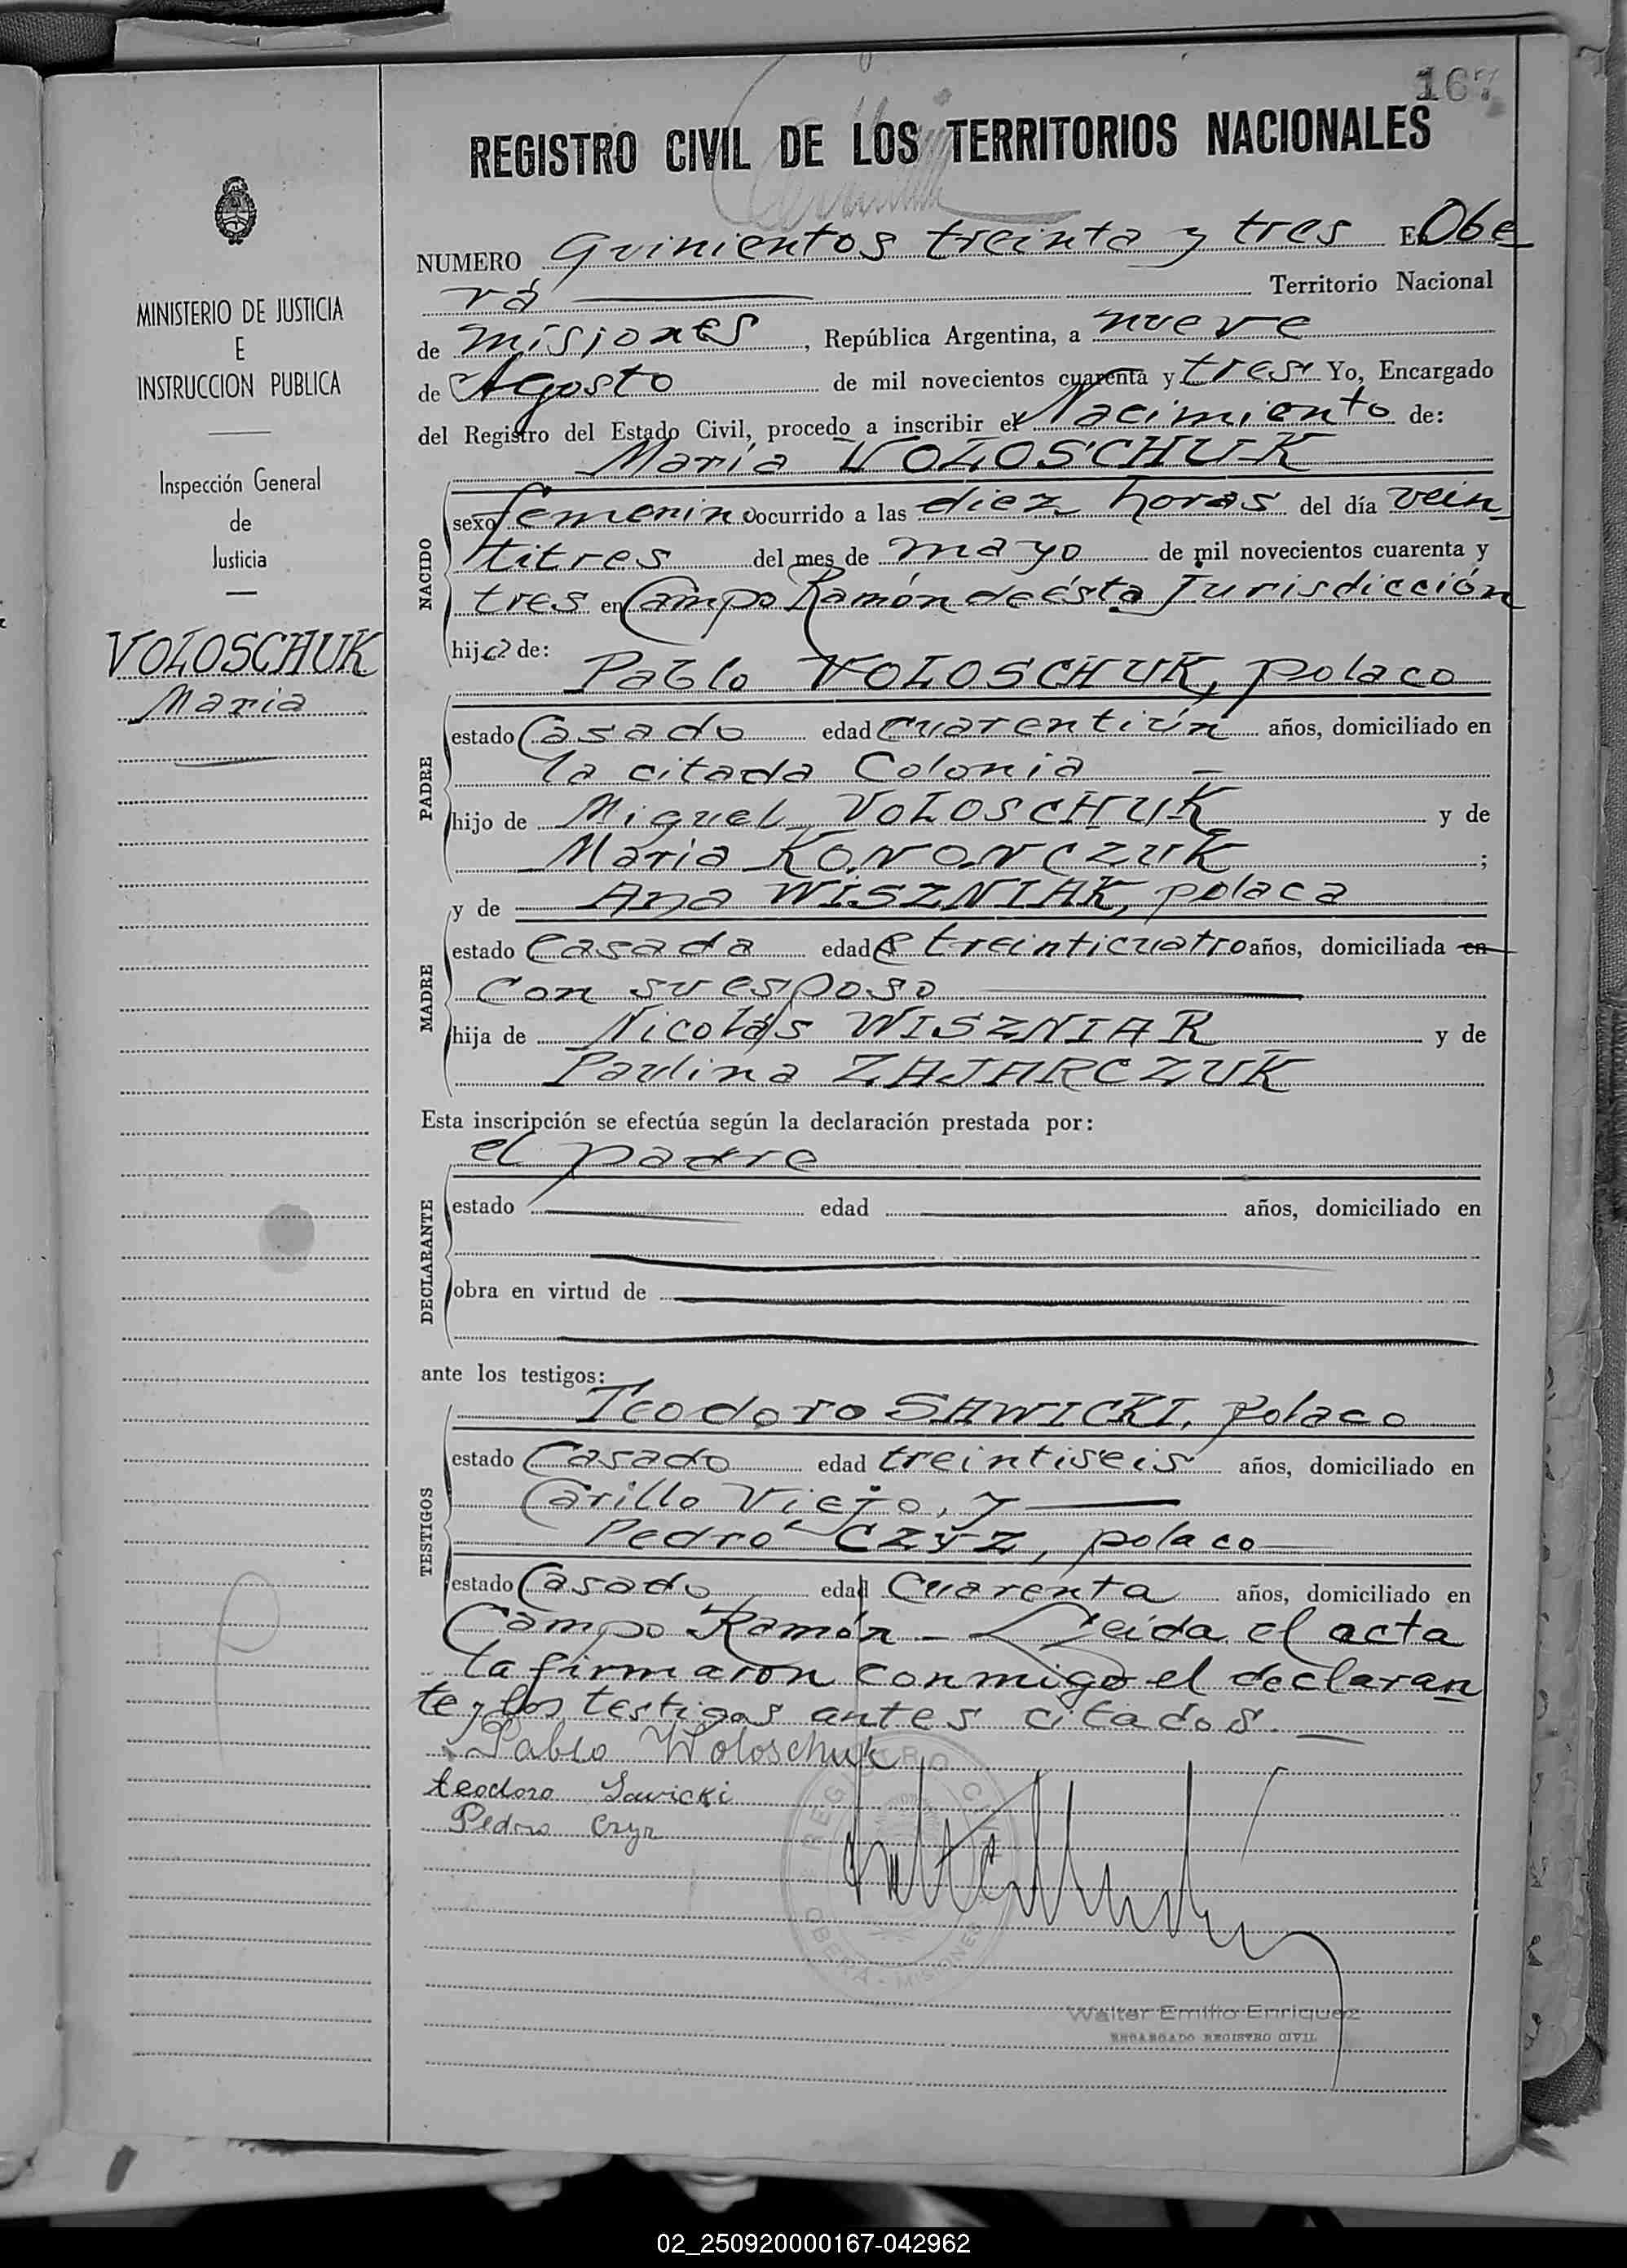 167
REGISTRO CIVIL DE LOS TERRITORIOS NACIONALES
NUMERO Quinientos treinta y tres En Obe
rá Territorio Nacional
de Misiones, República Argentina, a nueve
de Agosto de mil novecientos cuarenta y tres Yo, Encargado
del Registro del Estado Civil, procedo a inscribir el Nacimiento de:
María VOLOSCHUK
NACIDO
sexo femenino ocurrido a las diez horas del día vein
titres del mes de mayo de mil novecientos cuarenta y
tres en Campo Ramón de ésta Jurisdicción
hija de:
Pablo VOLOSCHUK, polaco
PADRE
estado Casado edad cuarentiún años, domiciliado en
la citada Colonia
hijo de Miguel VOLOSCHUK y de
Maria KONONCZUK ;
y de Ana WISZNIAK, polaca
MADRE
estado Casada edad treinticuatro años, domiciliada en
con su esposo
hija de Nicolás WISZNIAK y de
Paulina ZAJARCZUK
Esta inscripción se efectúa según la declaración prestada por:
el padre
DECLARANTE
estado edad años, domiciliado en
obra en virtud de
ante los testigos:
TESTIGOS
Teodoro SAWICKI, polaco
estado Casado edad treintiseis años, domiciliado en
Carillo Viejo, y
Pedro CZYZ, polaco
estado Casado edad cuarenta años, domiciliado en
Campo Ramón - Leida el acta
la firmaron conmigo el declaran
te y los testigos antes citados.
Pablo Woloschuk
teodoro Sawicki
Pedro Czyz
REGISTRO CIVIL
OBERA - MISIONES
Walter Emilio Enriquez
ENCARGADO REGISTRO CIVIL
MINISTERIO DE JUSTICIA
E
INSTRUCCION PUBLICA
Inspección General
de
Justicia
VOLOSCHUK
Maria
02_250920000167-042962